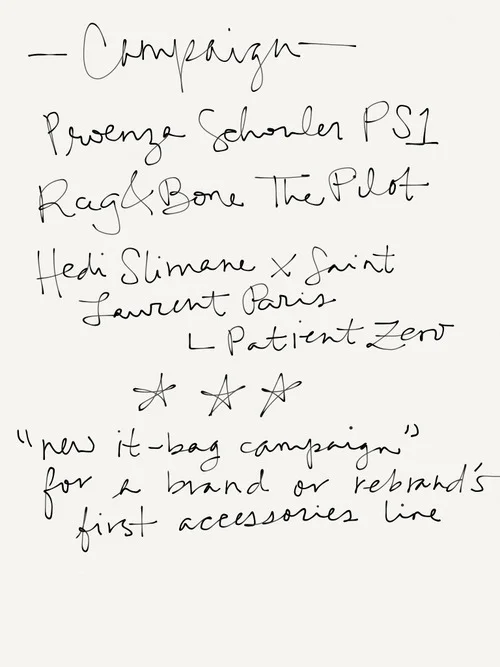 — Campaign —
Proenza Schouler PS1
Rag & Bone The Pilot
Hedi Slimane x Saint
Laurent Paris
∟ Patient Zero
☆ ☆ ☆
"new it-bag campaign"
for a brand or rebrand's
first accessories line